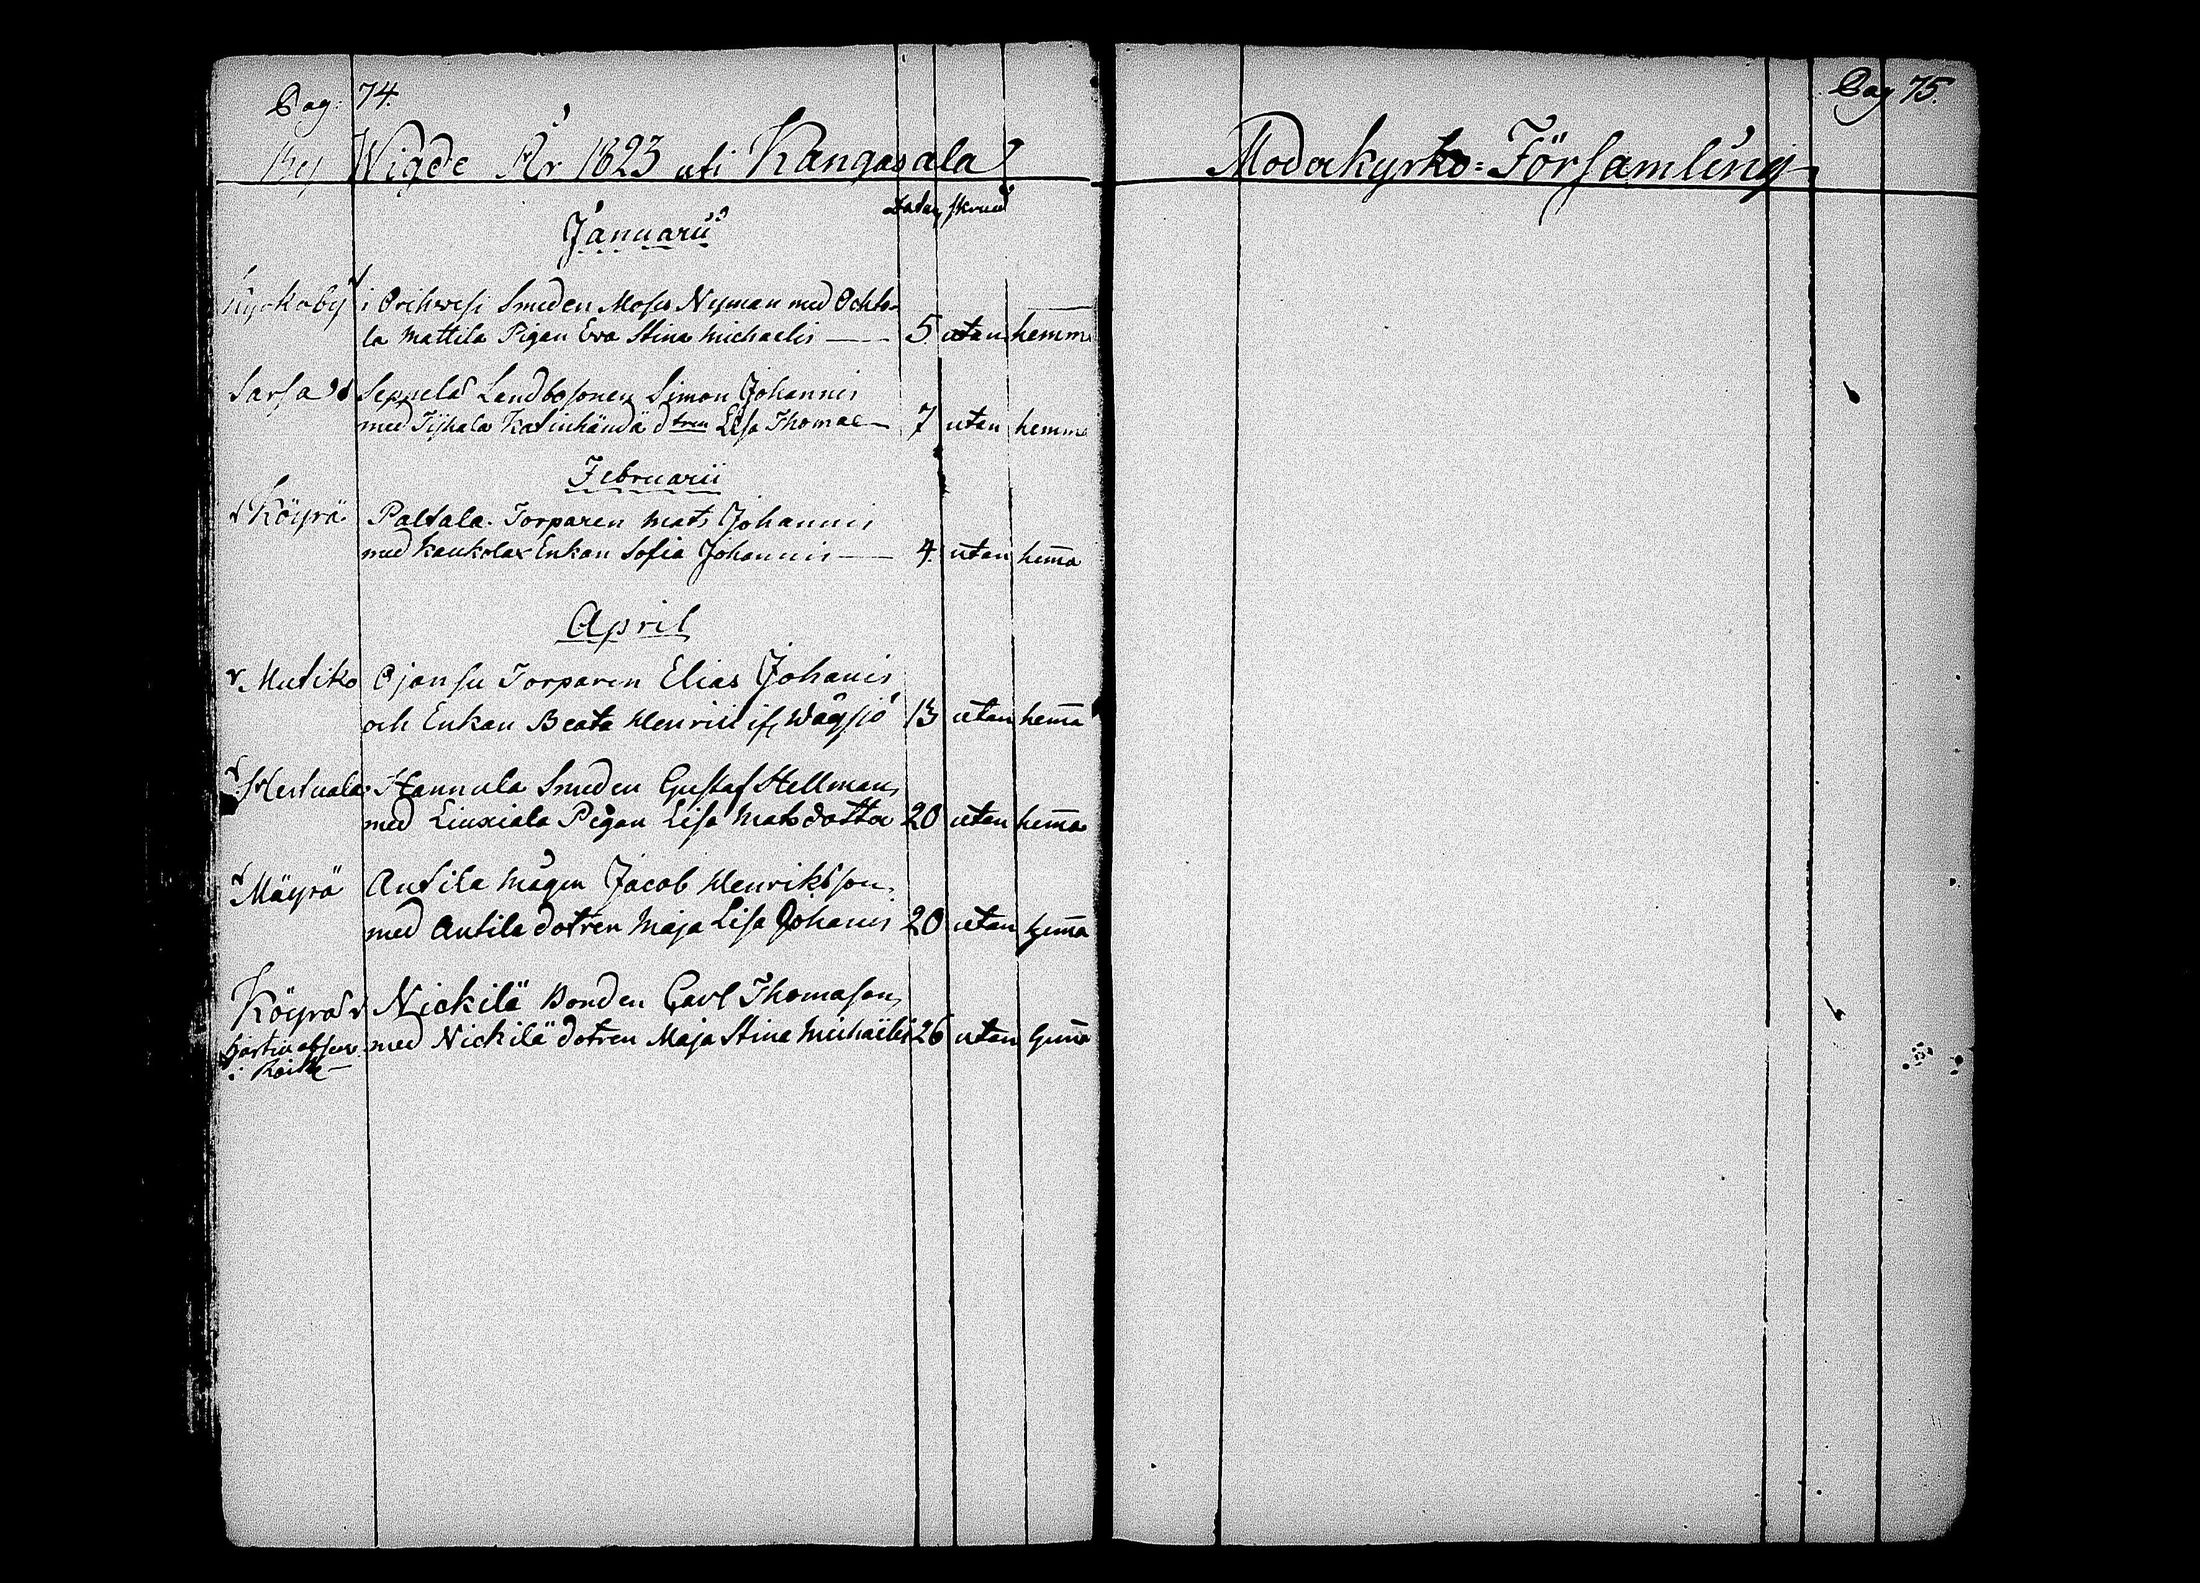 Pag: 74.
By Wigde År 1823 uti Kangasala
Dater, skrud
Januarii
Kyrkoby i Orihvesi Smeden Moses Nyman med Ochto-
la Mattila Pigan Eva Stina Michaelis — 5. utan hemma
Sarsa Seppelä Landbosonen Simon Johannis
med Tijhala Katinhändä dtren Lisa Thomae — 7 utan hemma
Februarii
Köyrä Paltala Torparen Mats Johannis
med Kaukola Enkan Sofia Johannis — 4. utan hem̄a
April
Mutiko Ojansu Torparen Elias Johanis
och Enkan Beata Henrici if. Wägsjö 13 utan hem̄a
Hertuala Hannula Smeden Gustaf Hellman
med Liuxiala Pigan Lisa Matsdotter 20 utan hem̄a
Mäyrä Antila Mågen Jacob Henriksson
med Antila dotren Maja Lisa Johanis 20 utan hem̄a
Köyrä Nickilä Bonden Carl Thomasson
med Nickilä dotren Maja Stina Michaelis 26 utan hem̄a
i
Pag 75.
Moderkyrko=Församling